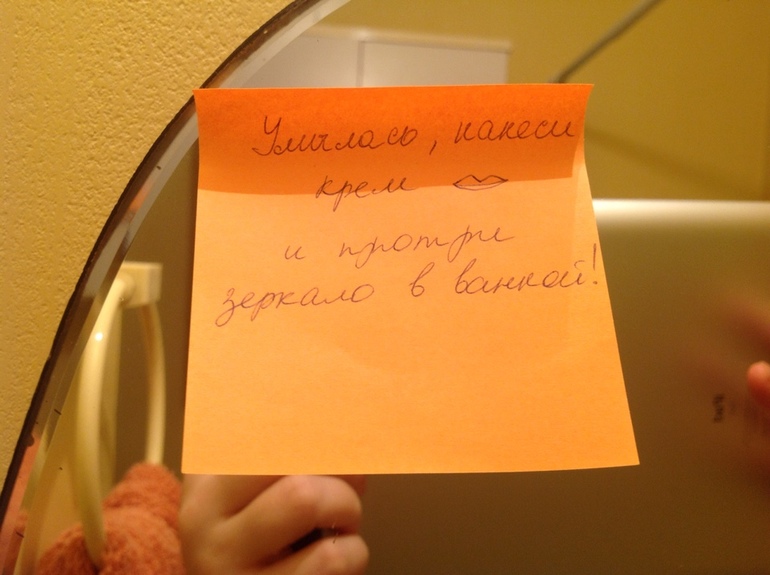 Умылась, нанеси
крем
и протри
зеркало в ванной!
iPad